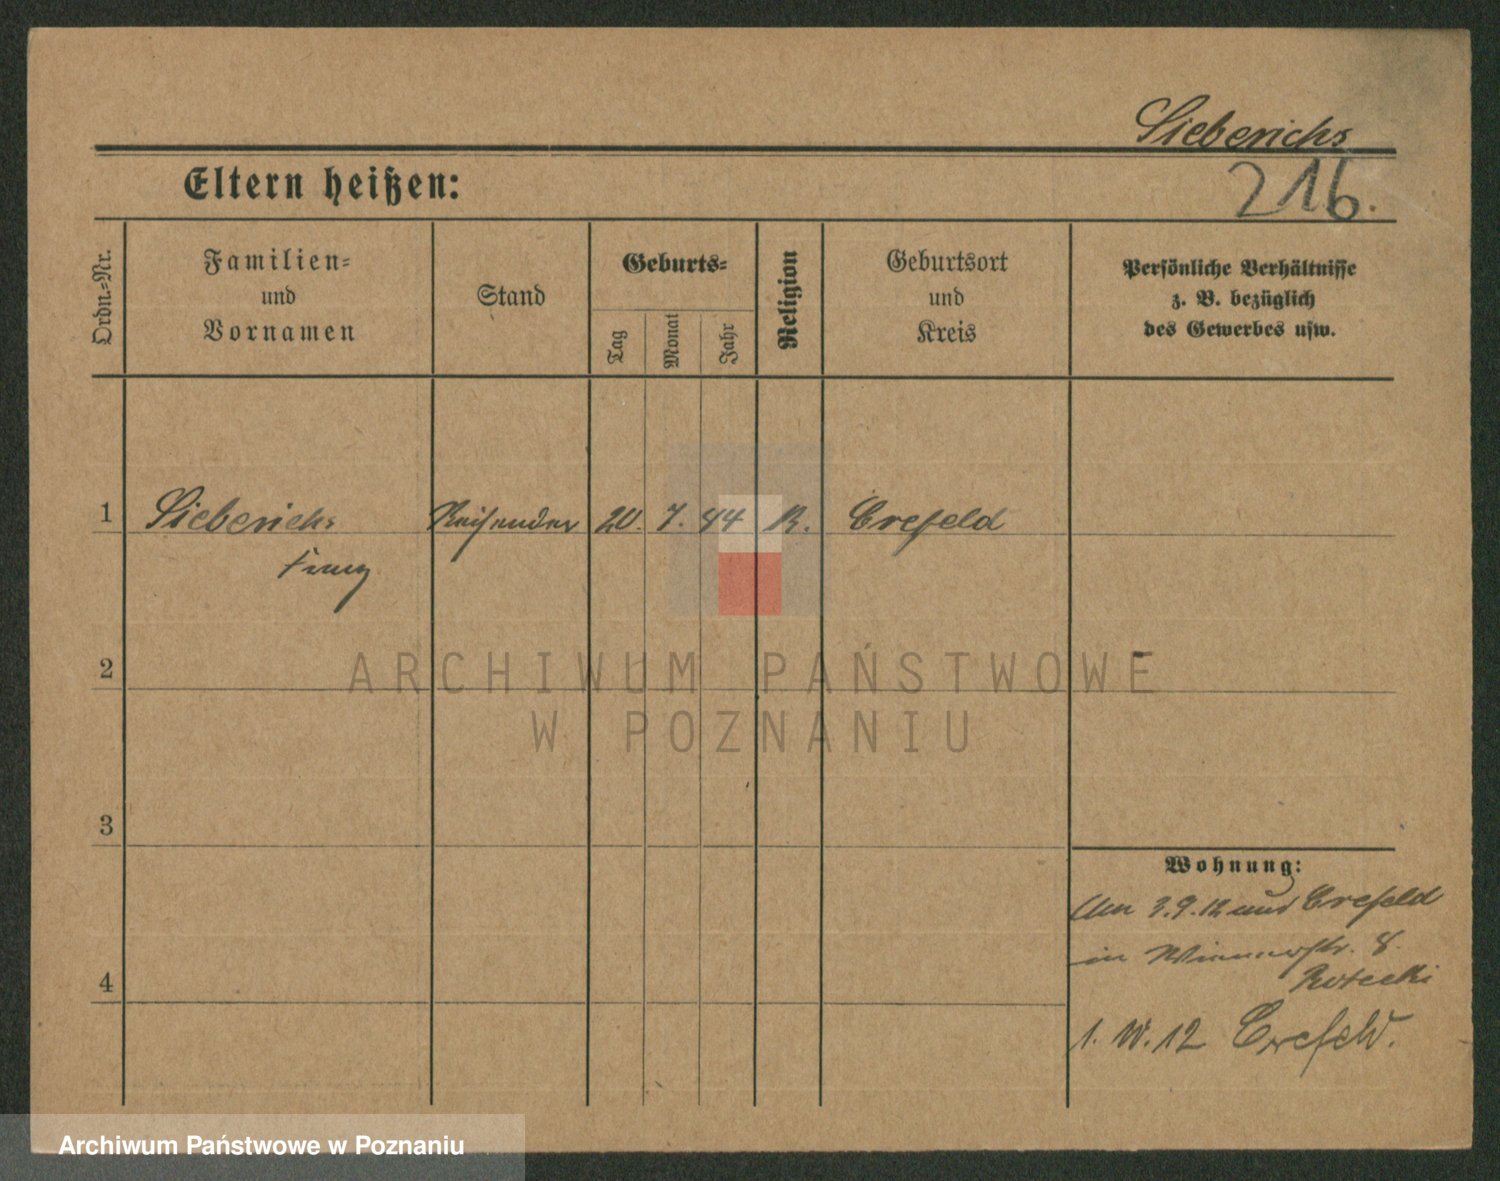 Sieberichs
216.
Eltern heißen:
Ordn.=Nr.
Familien=
und
Vornamen
Stand
Geburts=
Tag
Monat
Jahr
Religion
Geburtsort
und
Kreis
Persönliche Verhältnisse
z. B. bezüglich
des Gewerbes usw.
1 Sieberichs Reisender 20. 7. 44 R. Crefeld
Franz
2
3
4
Wohnung:
Am 3.9.12 aus Crefeld
in 8.
Rotecki
1. 12 Crefeld.
ARCHIWUM PAŃSTWOWE
W POZNANIU
Archiwum Państwowe w Poznaniu